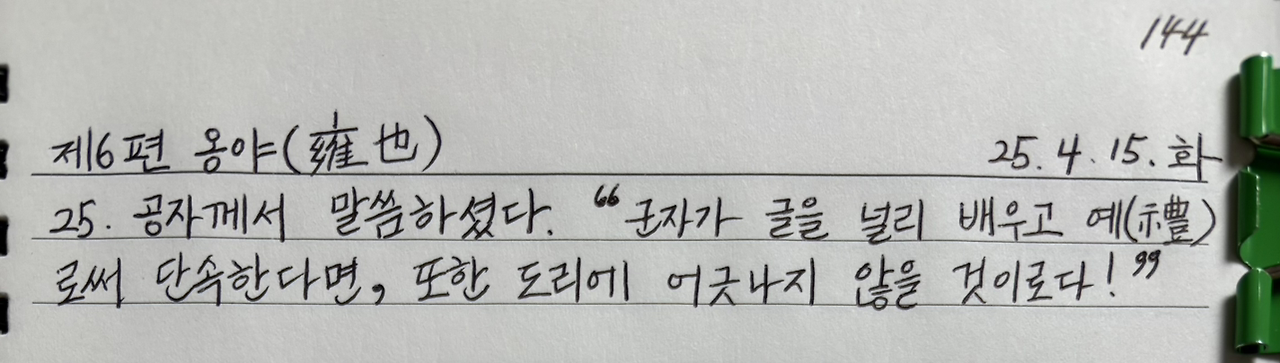 144
제6편 옹야(雍也) 25.4.15.화
25. 공자께서 말씀하셨다. “군자가 글을 널리 배우고 예(禮)
로써 단속한다면, 또한 도리에 어긋나지 않을 것이로다!”